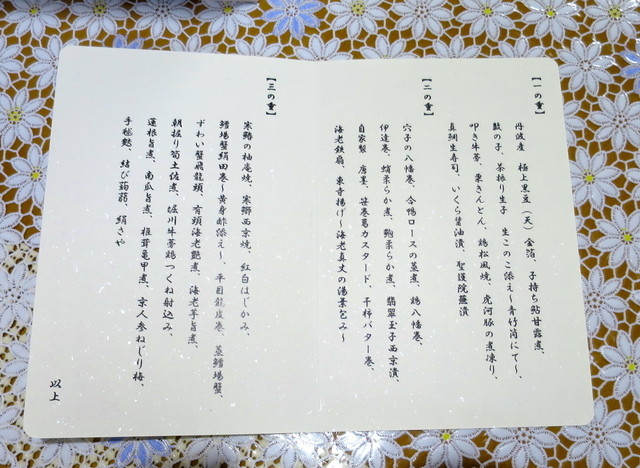 【一の重】
丹波産　極上黒豆（天）金箔、子持ち鮎甘露煮、
数の子、茶振り生子　生このこ添え～青竹筒にて～、
叩き牛蒡、栗きんとん、鶏松風焼、虎河豚の煮凍り、
真鯛生寿司、いくら醤油漬、聖護院蕪漬
【二の重】
穴子の八幡巻、合鴨ロースの蒸煮、鶏八幡巻、
伊達巻、蛸柔らか煮、鮑柔らか煮、翡翠玉子西京漬、
自家製　唐墨、笹巻葛カスタード、干柿バター巻、
海老鉄扇、東寺揚げ～海老真丈の湯葉包み～
【三の重】
寒鰤の柚庵焼、寒鰆西京焼、紅白はじかみ、
鱈場蟹絹田巻～黄身酢添え～、平目龍皮巻、蒸鱈場蟹、
ずわい蟹飛龍頭、有頭海老艶煮、海老芋旨煮、
朝掘り筍土佐煮、堀川牛蒡鶏つくね射込み、
蓮根旨煮、南瓜旨煮、椎茸亀甲煮、京人参ねじり梅、
手毬麩、結び蒟蒻、絹さや
以上